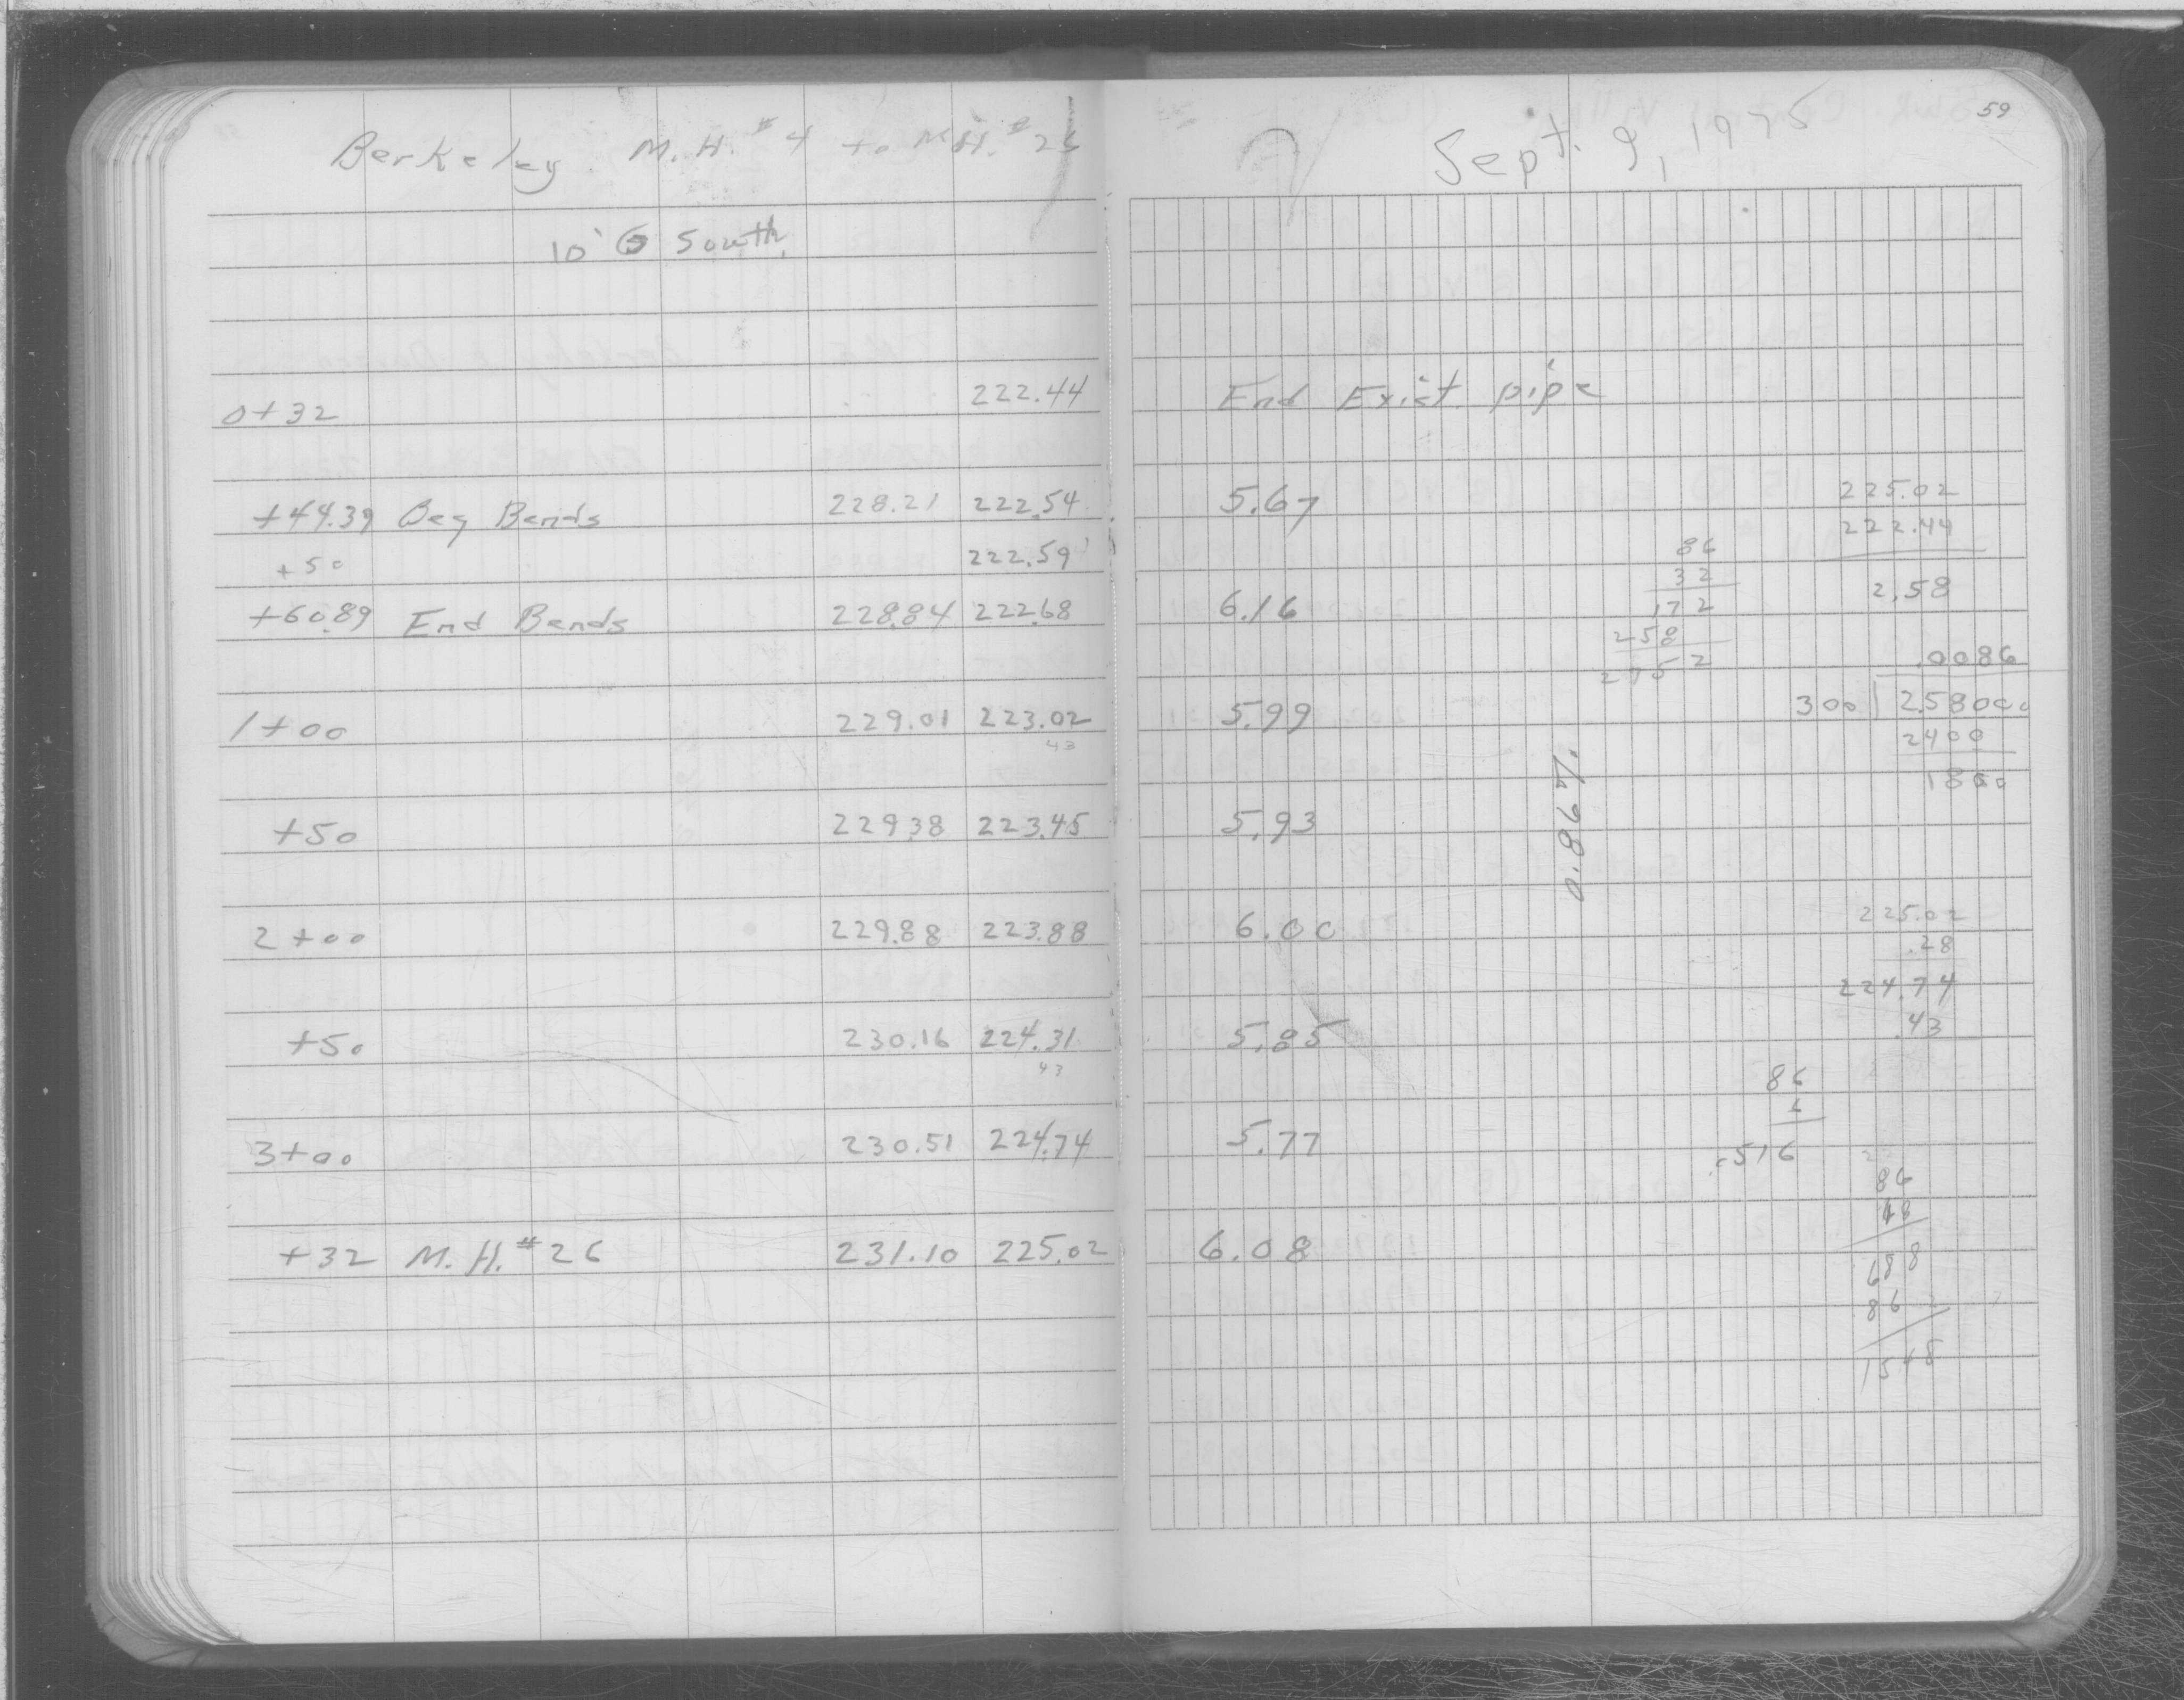 Berkeley M.H. #4 to M.H. #26
10' South
0+32 222.44
+44.39 Beg Bends 228.21 222.54
+50 222.59
+60.89 End Bends 228.84 222.68
1+00 229.01 223.02
43
+50 229.38 223.45
2+00 229.88 223.88
+50 230.16 224.31
43
3+00 230.51 224.74
+32 M.H. #26 231.10 225.02
59
Sept. 9, 1975
End Exist. pipe
5.67
6.16
5.99
5.93
6.00
5.85
5.77
6.08
86
32
172
258
2752
0.86%
225.02
222.44
2.58
.0086
300 2.58000
2400
1800
225.02
.28
224.74
.43
86
6
.516
86
18
688
86
1548